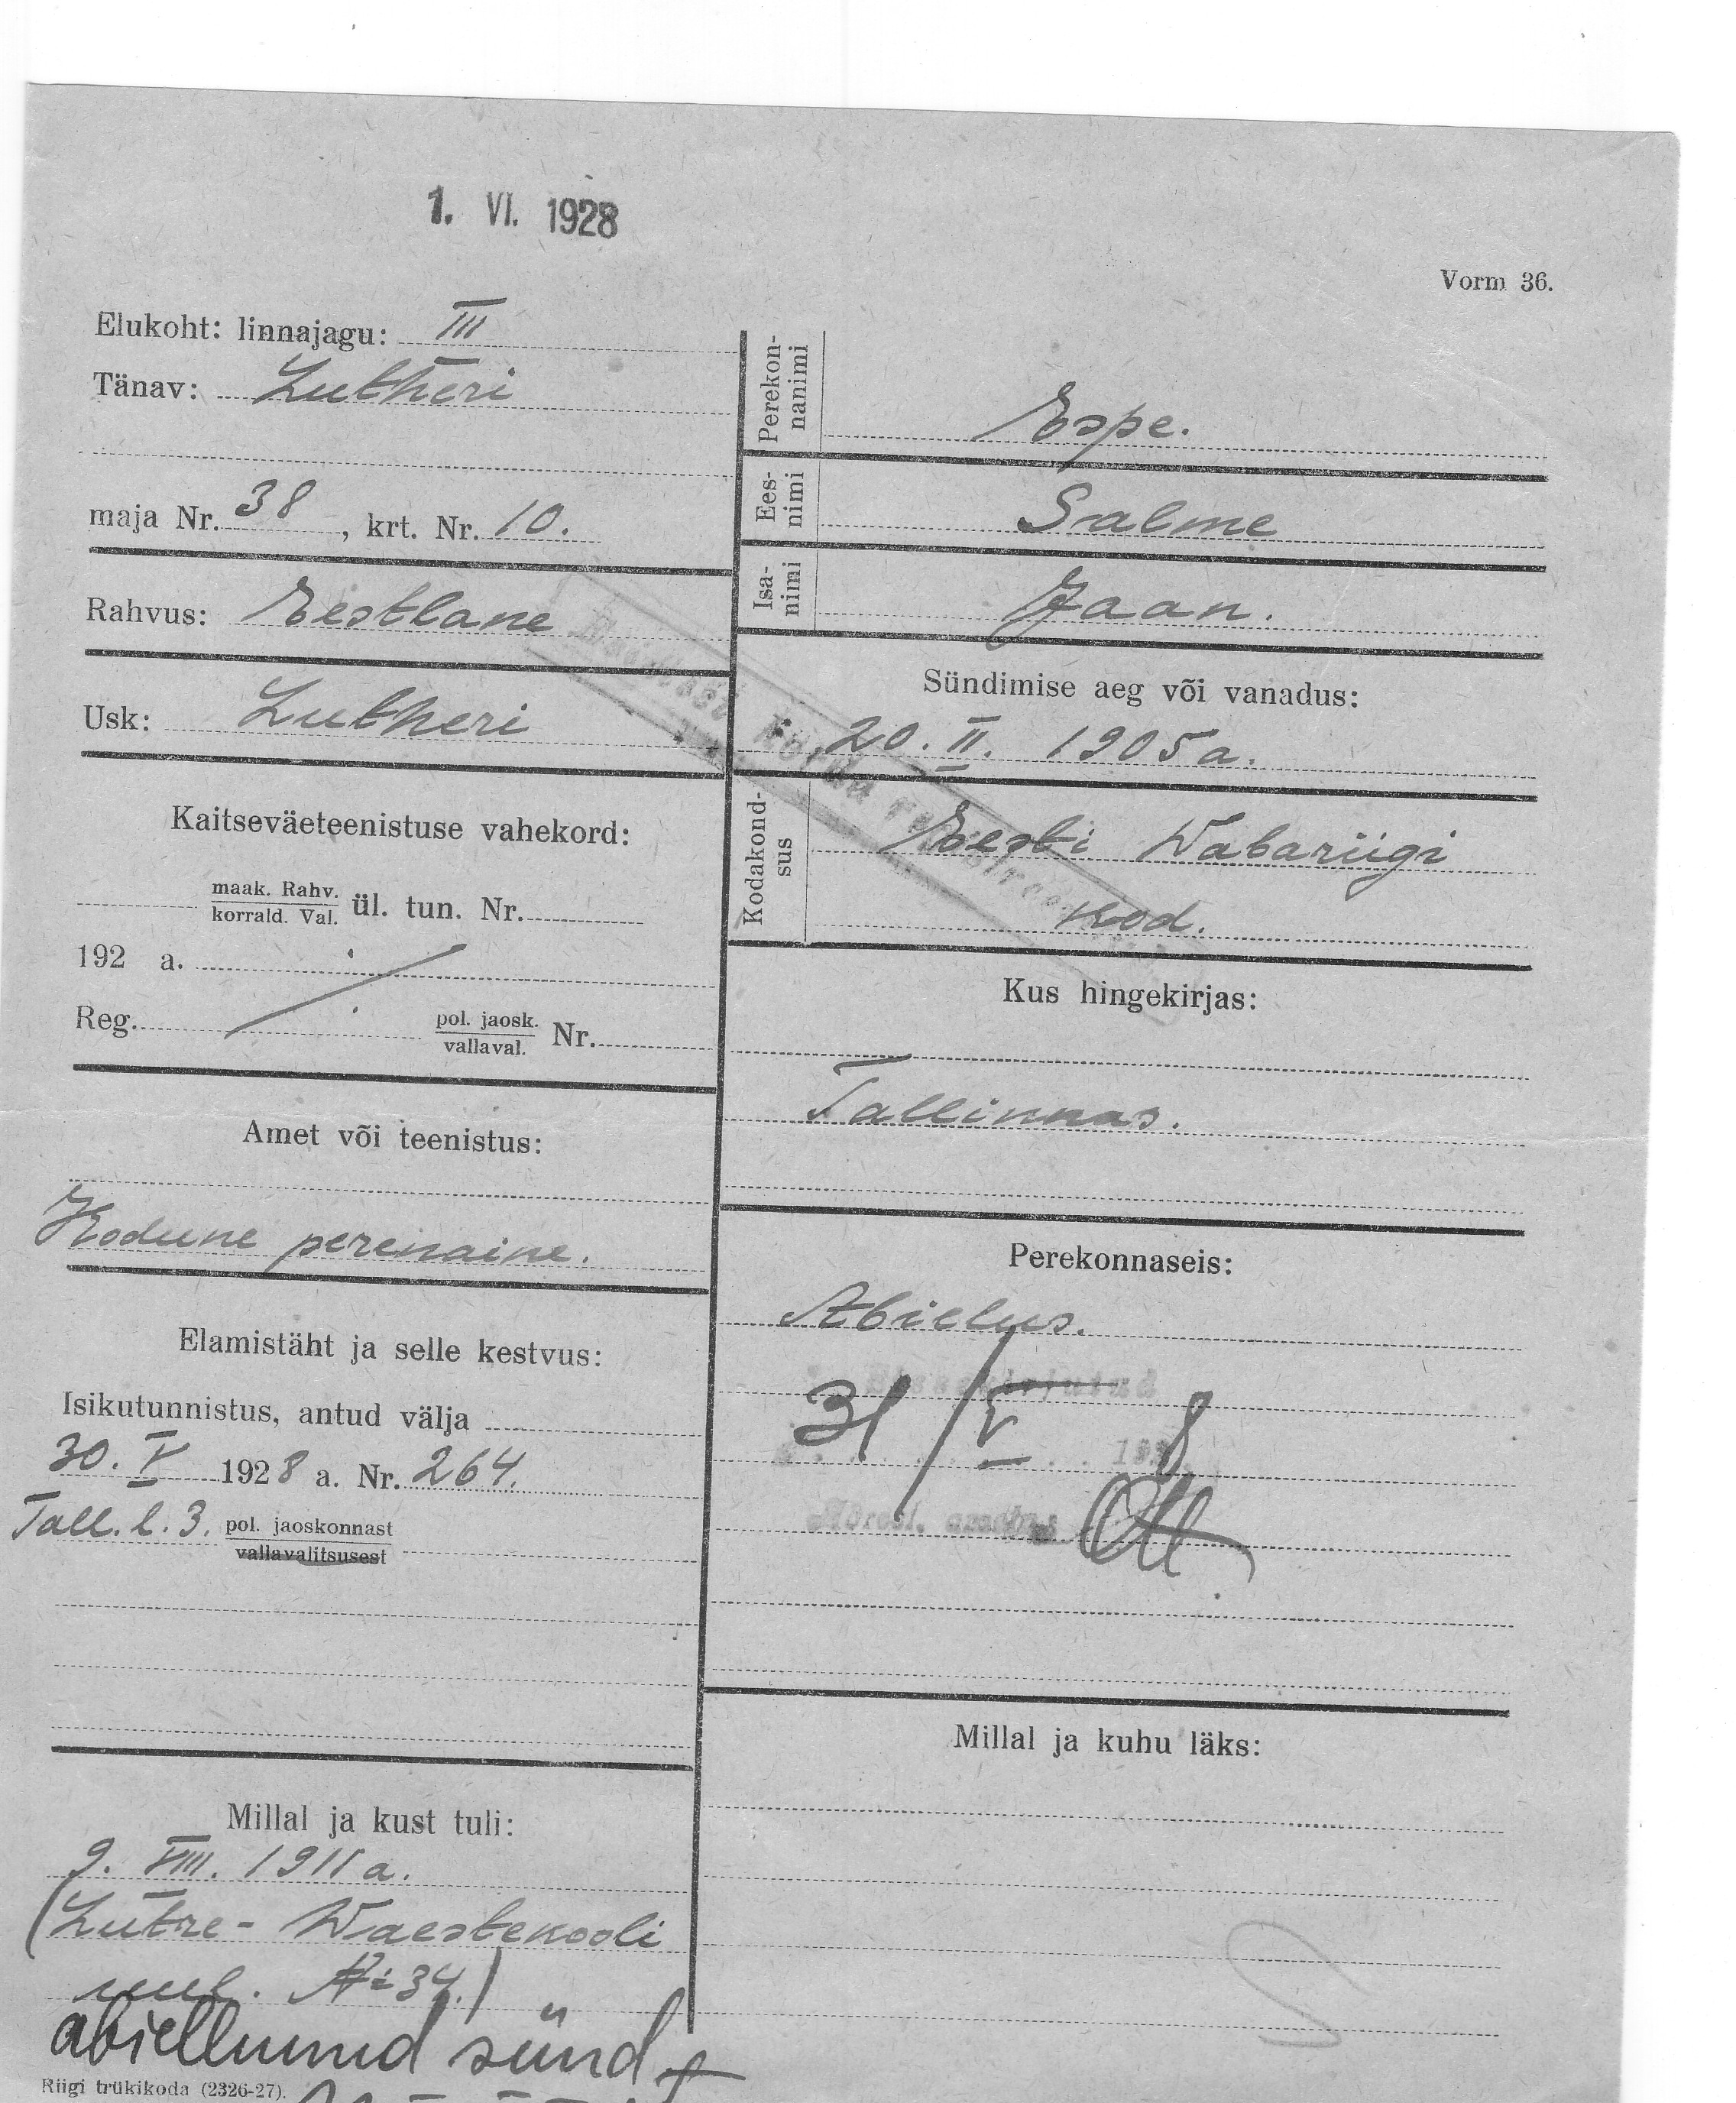 1. VI. 1928
Vorm 36.
Elukoht: linnajagu: III
Tänav: Lutheri
maja Nr. 38, krt. Nr. 10.
Rahvus: Eestlane
Usk: Lutheri
Kaitseväeteenistuse vahekord:
maak. Rahv.
korrald. Val. ül. tun. Nr.
192 a.
Reg. pol. jaosk.
vallaval. Nr.
Amet või teenistus:
Kodune perenaine.
Elamistäht ja selle kestvus:
Isikutunnistus, antud välja
30. V 1928 a. Nr. 264.
Tall. l. 3. pol. jaoskonnast
vallavalitsusest
Millal ja kust tuli:
9. VIII. 1911 a.
(Lutre- Waestekooli
34.)
abiellunud sünd
Riigi trükikoda (2326-27).
Perekon-
nanimi
Espe.
Ees-
nimi
Salme
Isa-
nimi
Jaan.
Sündimise aeg või vanadus:
20. II. 1905 a.
Kodakond-
sus
Eesti Wabariigi
kod.
Kus hingekirjas:
Tallinnas.
Perekonnaseis:
Abielus.
31/V 8
Millal ja kuhu läks: